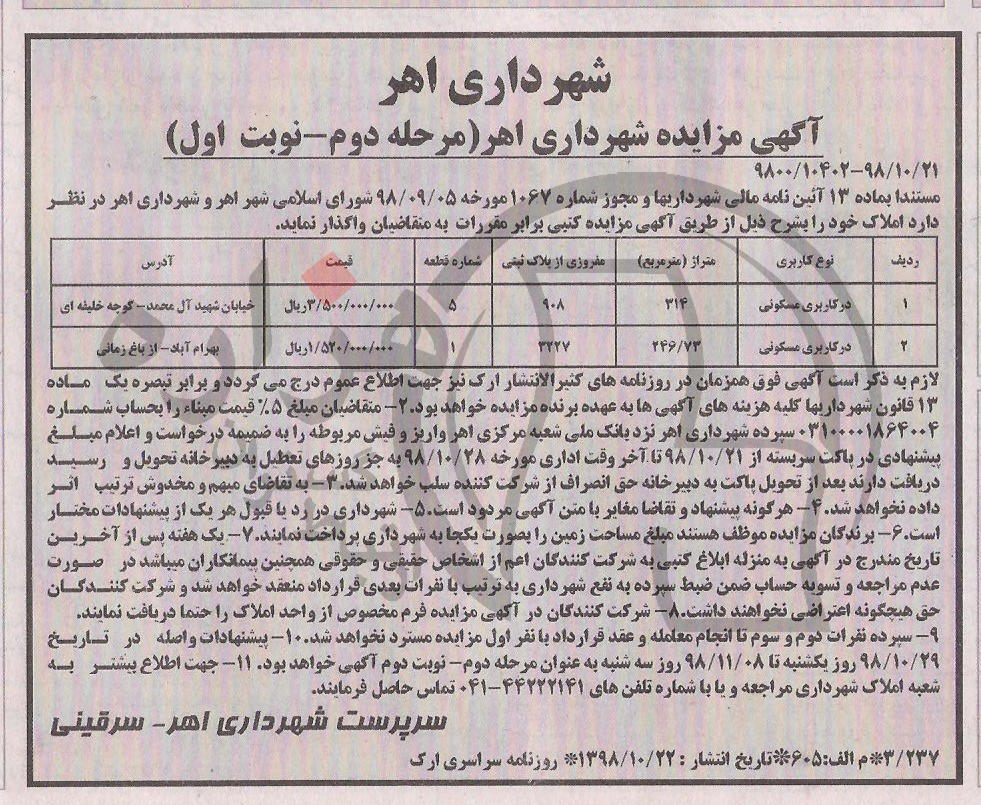 شهرداری اهر
آگهی مزایده شهرداری اهر(مرحله دوم-نوبت اول)
۹۸۰۰/۱۰۴۰۲-۹۸/۱۰/۲۱
مستندا بماده ۱۳ آئین نامه مالی شهرداریها و مجوز شماره ۱۰۶۷ مورخه ۹۸/۰۹/۰۵ شورای اسلامی شهر اهر و شهرداری اهر در نظر
دارد املاک خود را بشرح ذیل از طریق آگهی مزایده کتبی برابر مقررات به متقاضیان واگذار نماید.
ردیف نوع کاربری متراژ (مترمربع) مفروزی از پلاک ثبتی شماره قطعه قیمت آدرس
۱ در کاربری مسکونی ۳۱۴ ۹۰۸ ۵ ۳/۵۰۰/۰۰۰/۰۰۰ریال خیابان شهید آل محمد- کوچه خلیفه ای
۲ در کاربری مسکونی ۲۴۶/۷۳ ۳۲۲۷ ۱ ۱/۵۲۰/۰۰۰/۰۰۰ریال بهرام آباد- از باغ زمانی
لازم به ذکر است آگهی فوق همزمان در روزنامه های کثیرالانتشار ارک نیز جهت اطلاع عموم درج می گردد و برابر تبصره یک ماده
۱۳ قانون شهرداریها کلیه هزینه های آگهی ها به عهده برنده مزایده خواهد بود.۲- متقاضیان مبلغ ۵٪ قیمت مبناء را بحساب شماره
۰۳۱۰۰۰۰۱۸۶۴۰۰۴ سپرده شهرداری اهر نزد بانک ملی شعبه مرکزی اهر واریز و فیش مربوطه را به ضمیمه درخواست و اعلام مبلغ
پیشنهادی در پاکت سربسته از ۹۸/۱۰/۲۱ تا آخر وقت اداری مورخه ۹۸/۱۰/۲۸ به جز روزهای تعطیل به دبیرخانه تحویل و رسید
دریافت دارند بعد از تحویل پاکت به دبیرخانه حق انصراف از شرکت کننده سلب خواهد شد.۳- به تقاضای مبهم و مخدوش ترتیب اثر
داده نخواهد شد.۴- هرگونه پیشنهاد و تقاضا مغایر با متن آگهی مردود است.۵- شهرداری در رد یا قبول هر یک از پیشنهادات مختار
است.۶- برندگان مزایده موظف هستند مبلغ مساحت زمین را بصورت یکجا به شهرداری پرداخت نمایند.۷- یک هفته پس از آخرین
تاریخ مندرج در آگهی به منزله ابلاغ کتبی به شرکت کنندگان اعم از اشخاص حقیقی و حقوقی همچنین پیمانکاران میباشد در صورت
عدم مراجعه و تسویه حساب ضمن ضبط سپرده به نفع شهرداری به ترتیب با نفرات بعدی قرارداد منعقد خواهد شد و شرکت کنندگان
حق هیچگونه اعتراضی نخواهند داشت.۸- شرکت کنندگان در آگهی مزایده فرم مخصوص از واحد املاک را حتما دریافت نمایند.
۹- سپرده نفرات دوم و سوم تا انجام معامله و عقد قرارداد با نفر اول مزایده مسترد نخواهد شد.۱۰- پیشنهادات واصله در تاریخ
۹۸/۱۰/۲۹ روز یکشنبه تا ۹۸/۱۱/۰۸ روز سه شنبه به عنوان مرحله دوم- نوبت دوم آگهی خواهد بود. ۱۱- جهت اطلاع بیشتر به
شعبه املاک شهرداری مراجعه و یا با شماره تلفن های ۴۴۲۲۲۱۴۱-۰۴۱ تماس حاصل فرمایند.
سرپرست شهرداری اهر- سرقینی
۳/۲۳۷*م الف:۶۰۵*تاریخ انتشار : ۱۳۹۸/۱۰/۲۲* روزنامه سراسری ارک